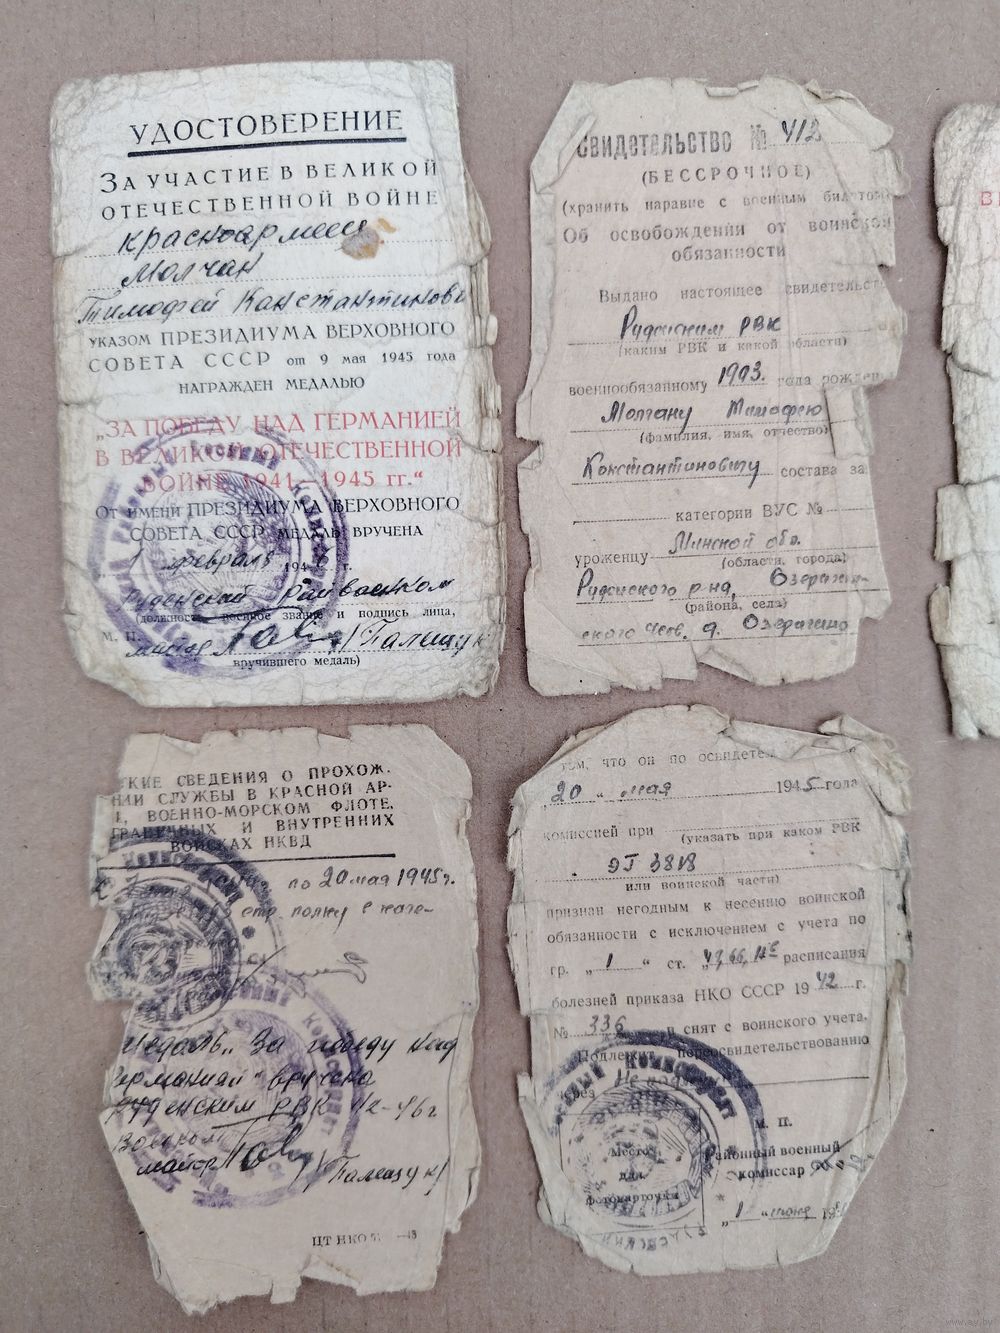 УДОСТОВЕРЕНИЕ
ЗА УЧАСТИЕ В ВЕЛИКОЙ
ОТЕЧЕСТВЕННОЙ ВОЙНЕ
красноармеец
Молчан
Тимофей Канстантинови
УКАЗОМ ПРЕЗИДИУМА ВЕРХОВНОГО
СОВЕТА СССР от 9 мая 1945 года
НАГРАЖДЕН МЕДАЛЬЮ
„ЗА ПОБЕДУ НАД ГЕРМАНИЕЙ
В ВЕЛИКОЙ ОТЕЧЕСТВЕННОЙ
ВОЙНЕ 1941—1945 гг.“
ОТ ИМЕНИ ПРЕЗИДИУМА ВЕРХОВНОГО
СОВЕТА СССР МЕДАЛЬ ВРУЧЕНА
1 февраля 194 г.
Руденский Райвоенком
(должность, военское звание и подпись лица,
М. П. майор /Палещук
вручившего медаль)
Свидетельство № 412
(БЕССРОЧНОЕ)
(хранить наравне с военным билетом
Об освобождении от воинской
обязанности
Выдано настоящее свидетельст
Руденским РВК
(каким РВК и какой области)
военнообязанному 1903. года рожден
Молчану Тимофею
(фамилия, имя, отчество)
Константиновичу состава за
категории ВУС №
уроженцу Минской обл.
(области, города)
Руденского р-на, Озерачин-
(района, села)
ского с/сов. д. Озерачино
СКИЕ СВЕДЕНИЯ О ПРОХОЖ.
НИИ СЛУЖБЫ В КРАСНОЙ АР-
, ВОЕННО-МОРСКОМ ФЛОТЕ,
ГРАНИЧНЫХ И ВНУТРЕННИХ
ВОЙСКАХ НКВД
по 20 мая 1945г.
стр. полку в каче-
Медаль „За победу над
Германией" вручена
Руденским РВК 1/2-46г
Военком
майор /Палещук/
ЦТ НКО —45
том, что он по освидетел
„20" мая 1945 года
комиссией при
(указать при каком РВК
ЭГ 3818
или воинской части)
признан негодным к несению воинской
обязанности с исключением с учета по
гр. „1“ ст. расписания
болезней приказа НКО СССР 1942 г.
№ 336 и снят с воинского учета.
Подлежит переосвидетельствованию
через
М. П.
Место
для
фотокарточки
Районный военный
комиссар
„1" июня 19
www.ay.by